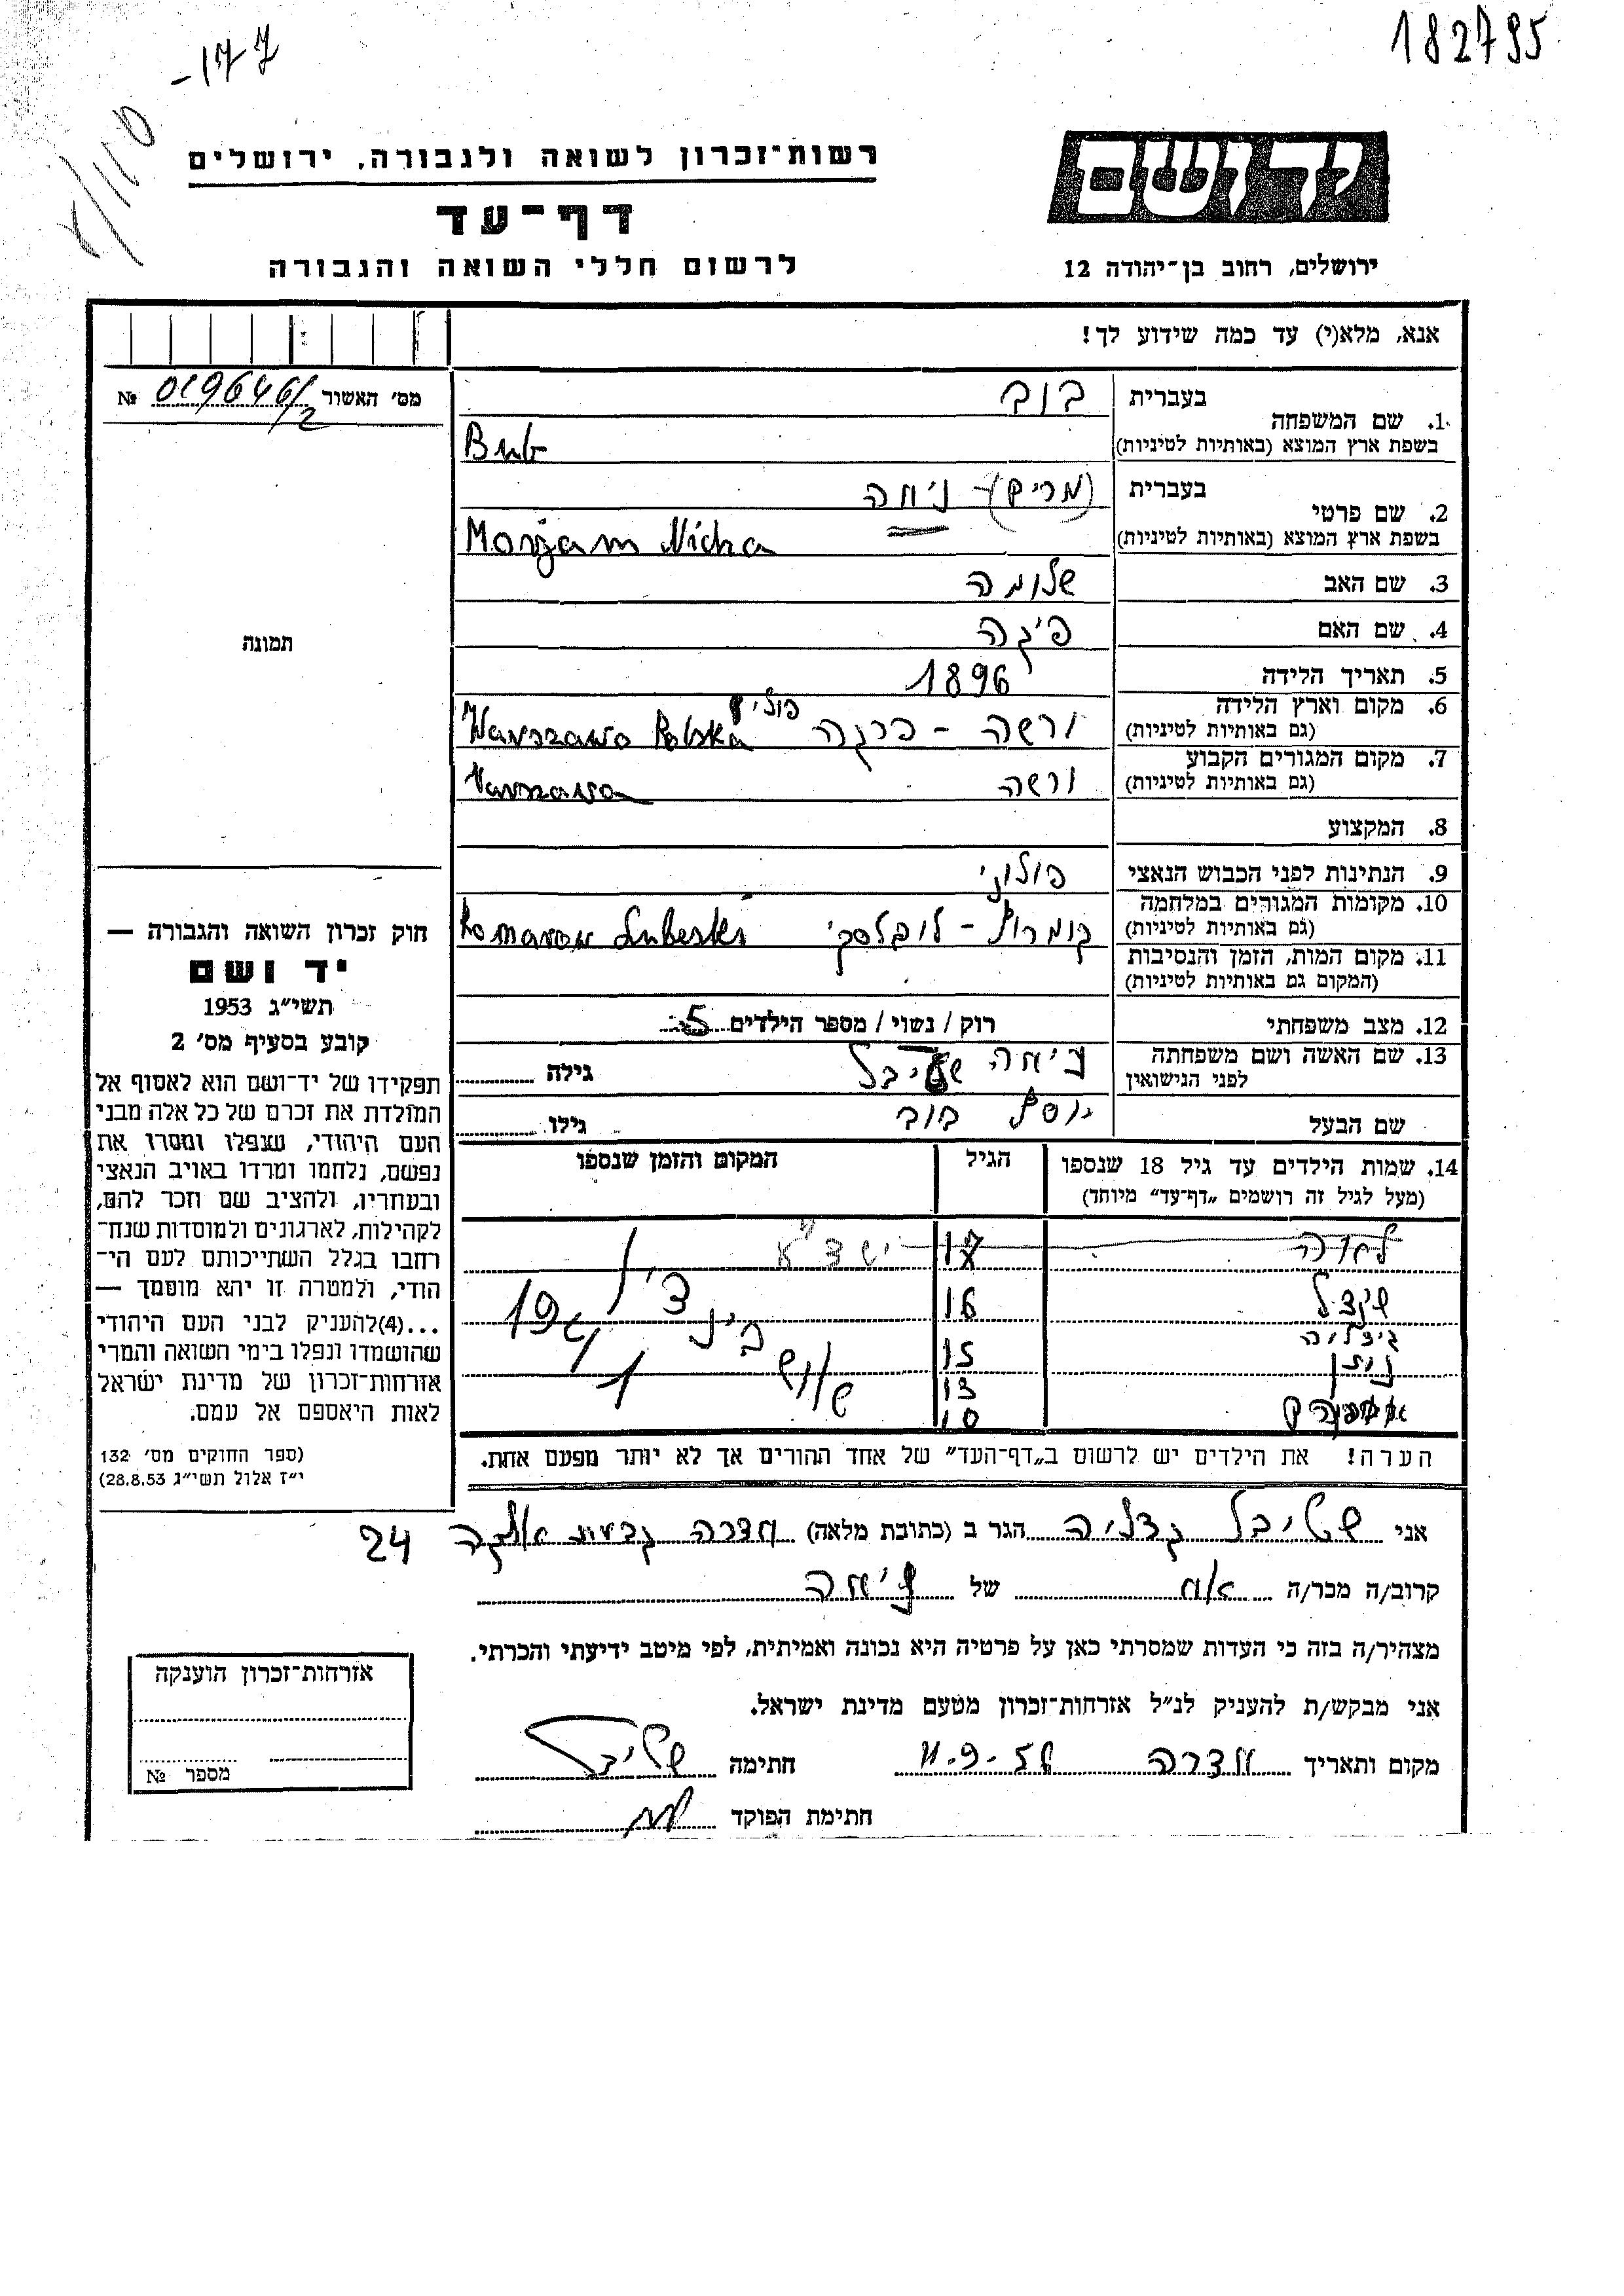 182795
-177
רשות־זכרון לשואה ולגבורה, ירושלים
יד ושם
דף־עד
לרשום חללי השואה והגבורה
ירושלים, רחוב בן־יהודה 12
אנא, מלא(י) עד כמה שידוע לך!
מס׳ האשור № 019646/2
1. שם המשפחה
בעברית בוב
בשפת ארץ המוצא (באותיות לטיניות) Bub
2. שם פרטי
בעברית (מרים) - ניחה
בשפת ארץ המוצא (באותיות לטיניות) Morjam Nicha
3. שם האב שלומה
4. שם האם פיגה
5. תאריך הלידה 1896
6. מקום וארץ הלידה
(גם באותיות לטיניות) ורשה - פרגה פולין Warszawa Polska
7. מקום המגורים הקבוע
(גם באותיות לטיניות) ורשה Warszawa
8. המקצוע
9. הנתינות לפני הכבוש הנאצי פולוני
10. מקומות המגורים במלחמה
(גם באותיות לטיניות) קומרוב - לובלסקי Komarow Lubelski
11. מקום המות, הזמן והנסיבות
(המקום גם באותיות לטיניות)
12. מצב משפחתי רוק / נשוי / מספר הילדים 5
13. שם האשה ושם משפחתה
לפני הנישואין ניחה שטיבל גילה
שם הבעל יוסף בוב גילו
14. שמות הילדים עד גיל 18 שנספו
(מעל לגיל זה רושמים „דף־עד״ מיוחד)
הגיל
המקום והזמן שנספו
17
שינדל 16
גדליה 15
נתן 13
10
1941
הערה! את הילדים יש לרשום ב„דף־העד״ של אחד ההורים אך לא יותר מפעם אחת.
אני שטיבל גדליה הגר ב (כתובת מלאה) חדרה גבעת אולגה 24
קרוב/ה מכר/ה אח של ניחה
מצהיר/ה בזה כי העדות שמסרתי כאן על פרטיה היא נכונה ואמיתית, לפי מיטב ידיעתי והכרתי.
אני מבקש/ת להעניק לנ״ל אזרחות־זכרון מטעם מדינת ישראל.
מקום ותאריך חדרה 11-9-56 חתימה שטיבל
חתימת הפוקד
תמונה
חוק זכרון השואה והגבורה —
יד ושם
תשי״ג 1953
קובע בסעיף מס׳ 2
תפקידו של יד־ושם הוא לאסוף אל
המולדת את זכרם של כל אלה מבני
העם היהודי, שנפלו ומסרו את
נפשם, נלחמו ומרדו באויב הנאצי
ובעוזריו, ולהציב שם וזכר להם,
לקהילות, לארגונים ולמוסדות שנח־
רחבו בגלל השתייכותם לעם הי־
הודי, ולמטרה זו יהא מוסמך —
...(4)להעניק לבני העם היהודי
שהושמדו ונפלו בימי השואה והמרי
אזרחות־זכרון של מדינת ישראל
לאות היאספם אל עמם.
(ספר החוקים מס׳ 132
י״ז אלול תשי״ג 28.8.53)
אזרחות־זכרון הוענקה
מספר №